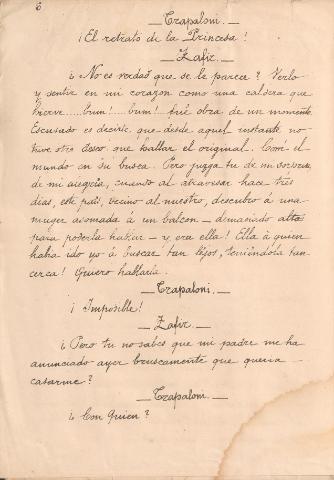 6
— Trapaloni. —
¡El retrato de la Princesa!
— Zafir. —
¿No es verdad que se le parece? Verlo
y sentir en mi corazon como una caldera que
hierve....bum! bum! fué obra de un momento.
Escusado es decirte que desde aquel instante no
tuve otro deseo que hallar el original. Corrí el
mundo en su busca. Pero juzga tu de mi sorpresa
de mi alegría, cuando al atravesar hace tres
dias, este país, vecino al nuestro, descubro á una
muger asomada á un balcon — demasiado alto
para poderla hablar — y era ella! Ella á quien
habia ido yo á buscar tan léjos, teniéndola tan
cerca! Quiero hablarla.
— Trapaloni. —
¡Imposible!
— Zafir. —
¿Pero tu no sabes que mi padre me ha
anunciado ayer bruscamente que queria
casarme?
— Trapaloni. —
¿Con quien?